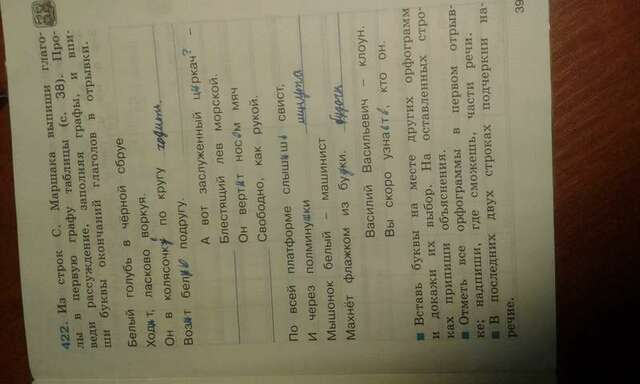 422. Из строк С. Маршака выпиши глаго-
лы в первую графу таблицы (с. 38). Про-
веди рассуждение, заполняя графы, и впи-
ши буквы окончаний глаголов в отрывки.
Белый голубь в чёрной сбруе
Ходит, ласково воркуя.
Он в колясочку по кругу ходить
Возит белую подругу.
А вот заслуженный циркач? –
Блестящий лев морской.
Он вертит носом мяч
Свободно, как рукой.
По всей платформе слышишь свист,
И через полминутки минута
Мышонок белый – машинист
Махнёт флажком из будки. будочка
Василий Васильевич – клоун.
Вы скоро узнаёте, кто он.
Вставь буквы на месте других орфограмм
и докажи их выбор. На оставленных стро-
ках припиши объяснения.
Отметь все орфограммы в первом отрыв-
ке; надпиши, где сможешь, части речи.
В последних двух строках подчеркни на-
речие.
39